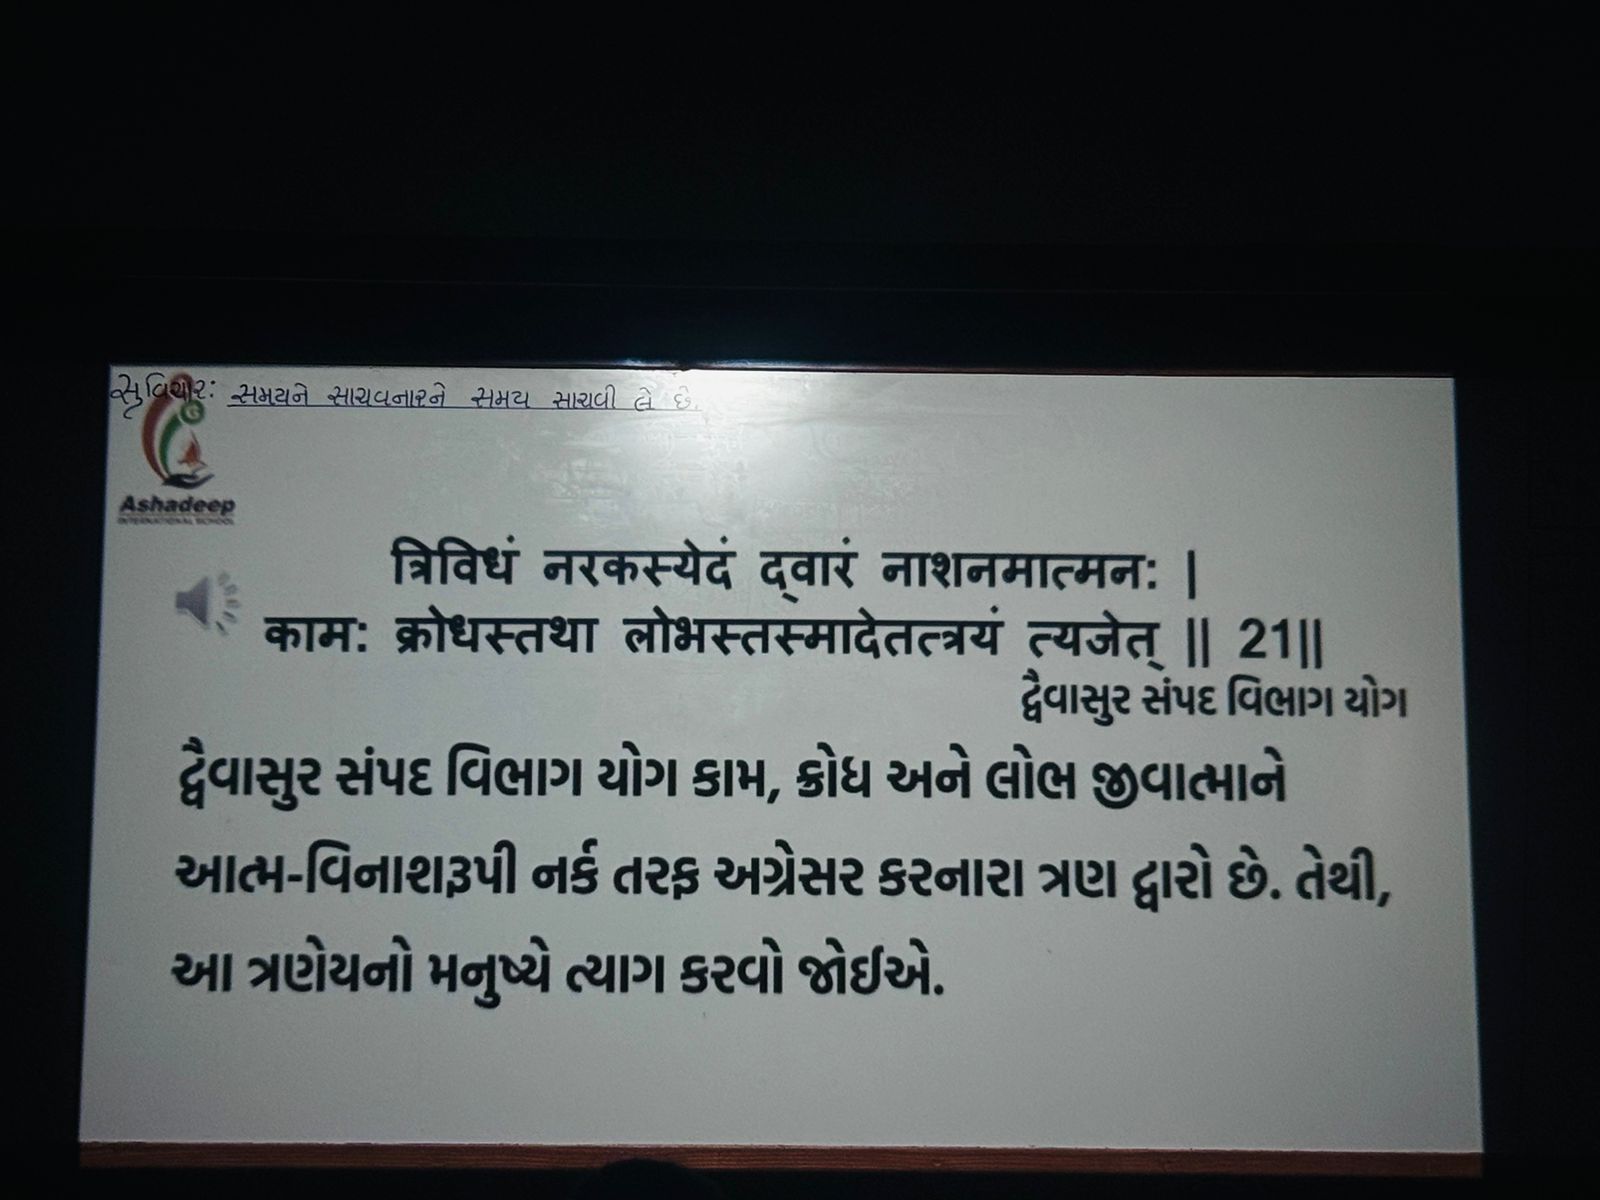 સુવિચાર: સમયને સાચવનારને સમય સાચવી લે છે.
Ashadeep
INTERNATIONAL SCHOOL
त्रिविधं नरकस्येदं द्वारं नाशनमात्मन: |
काम: क्रोधस्तथा लोभस्तस्मादेतत्त्रयं त्यजेत् || 21||
દ્વૈવાસુર સંપદ વિભાગ યોગ
દ્વૈવાસુર સંપદ વિભાગ યોગ કામ, ક્રોધ અને લોભ જીવાત્માને
આત્મ-વિનાશરૂપી નર્ક તરફ અગ્રેસર કરનારા ત્રણ દ્વારો છે. તેથી,
આ ત્રણેયનો મનુષ્યે ત્યાગ કરવો જોઈએ.